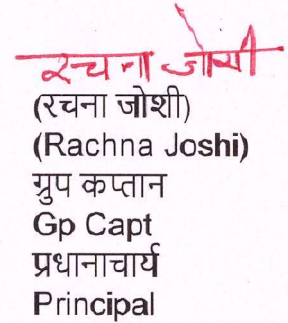 रचना जोशी
(रचना जोशी)
(Rachna Joshi)
ग्रुप कप्तान
Gp Capt
प्रधानाचार्य
Principal